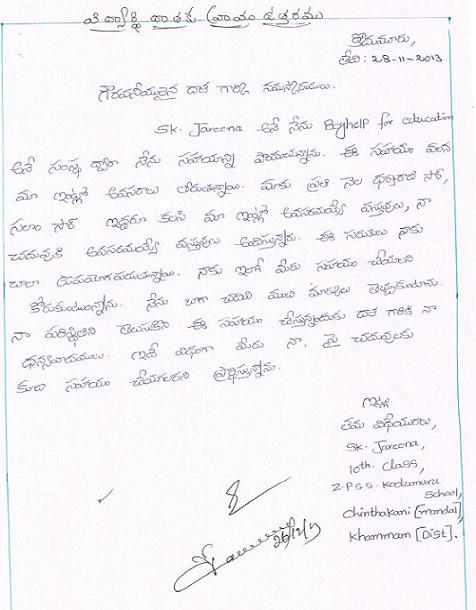 విద్యార్థి దాతకు వ్రాయు ఉత్తరము
కోదుమూరు,
తేది : 28-11-2013
గౌరవనీయులైన దాత గార్కి నమస్కారములు.
Sk. Jareena అనే నేను Buyhelp for education
అనే సంస్థ ద్వారా నేను సహాయాన్ని పొందుతున్నాను. ఈ సహాయం వలన
మా ఇంట్లో అవసరాలు తీరుతున్నాయి. మాకు ప్రతి నెల ధర్మరాజు సార్,
సలాం సార్ ఇద్దరూ కలసి మా ఇంట్లో అవసరమయ్యే వస్తువులు, నా
చదువుకి అవసరమయ్యే వస్తువులు ఇస్తున్నారు. ఈ సరుకులు నాకు
చాలా ఉపయోగపడుతున్నాయి. నాకు ఇలానే మీరు సహాయం చేయాలని
కోరుకుంటున్నాను. నేను బాగా చదివి మంచి మార్కులు తెచ్చుకుంటాను.
నా పరిస్థితిని తెలుసుకొని ఈ సహాయం చేస్తున్నందుకు దాత గారికి నా
ధన్యవాదములు. ఇదే విధంగా మీరు నా పై చదువులకు
కూడా సహాయం చేయగలరని ప్రార్థిస్తున్నాను.
ఇట్లు
తమ విధేయురాలు,
Sk. Jareena,
10th. class,
Z.P.S.S. Kodumuru
School,
Chinthakani [mandal],
Khammam [Dist].